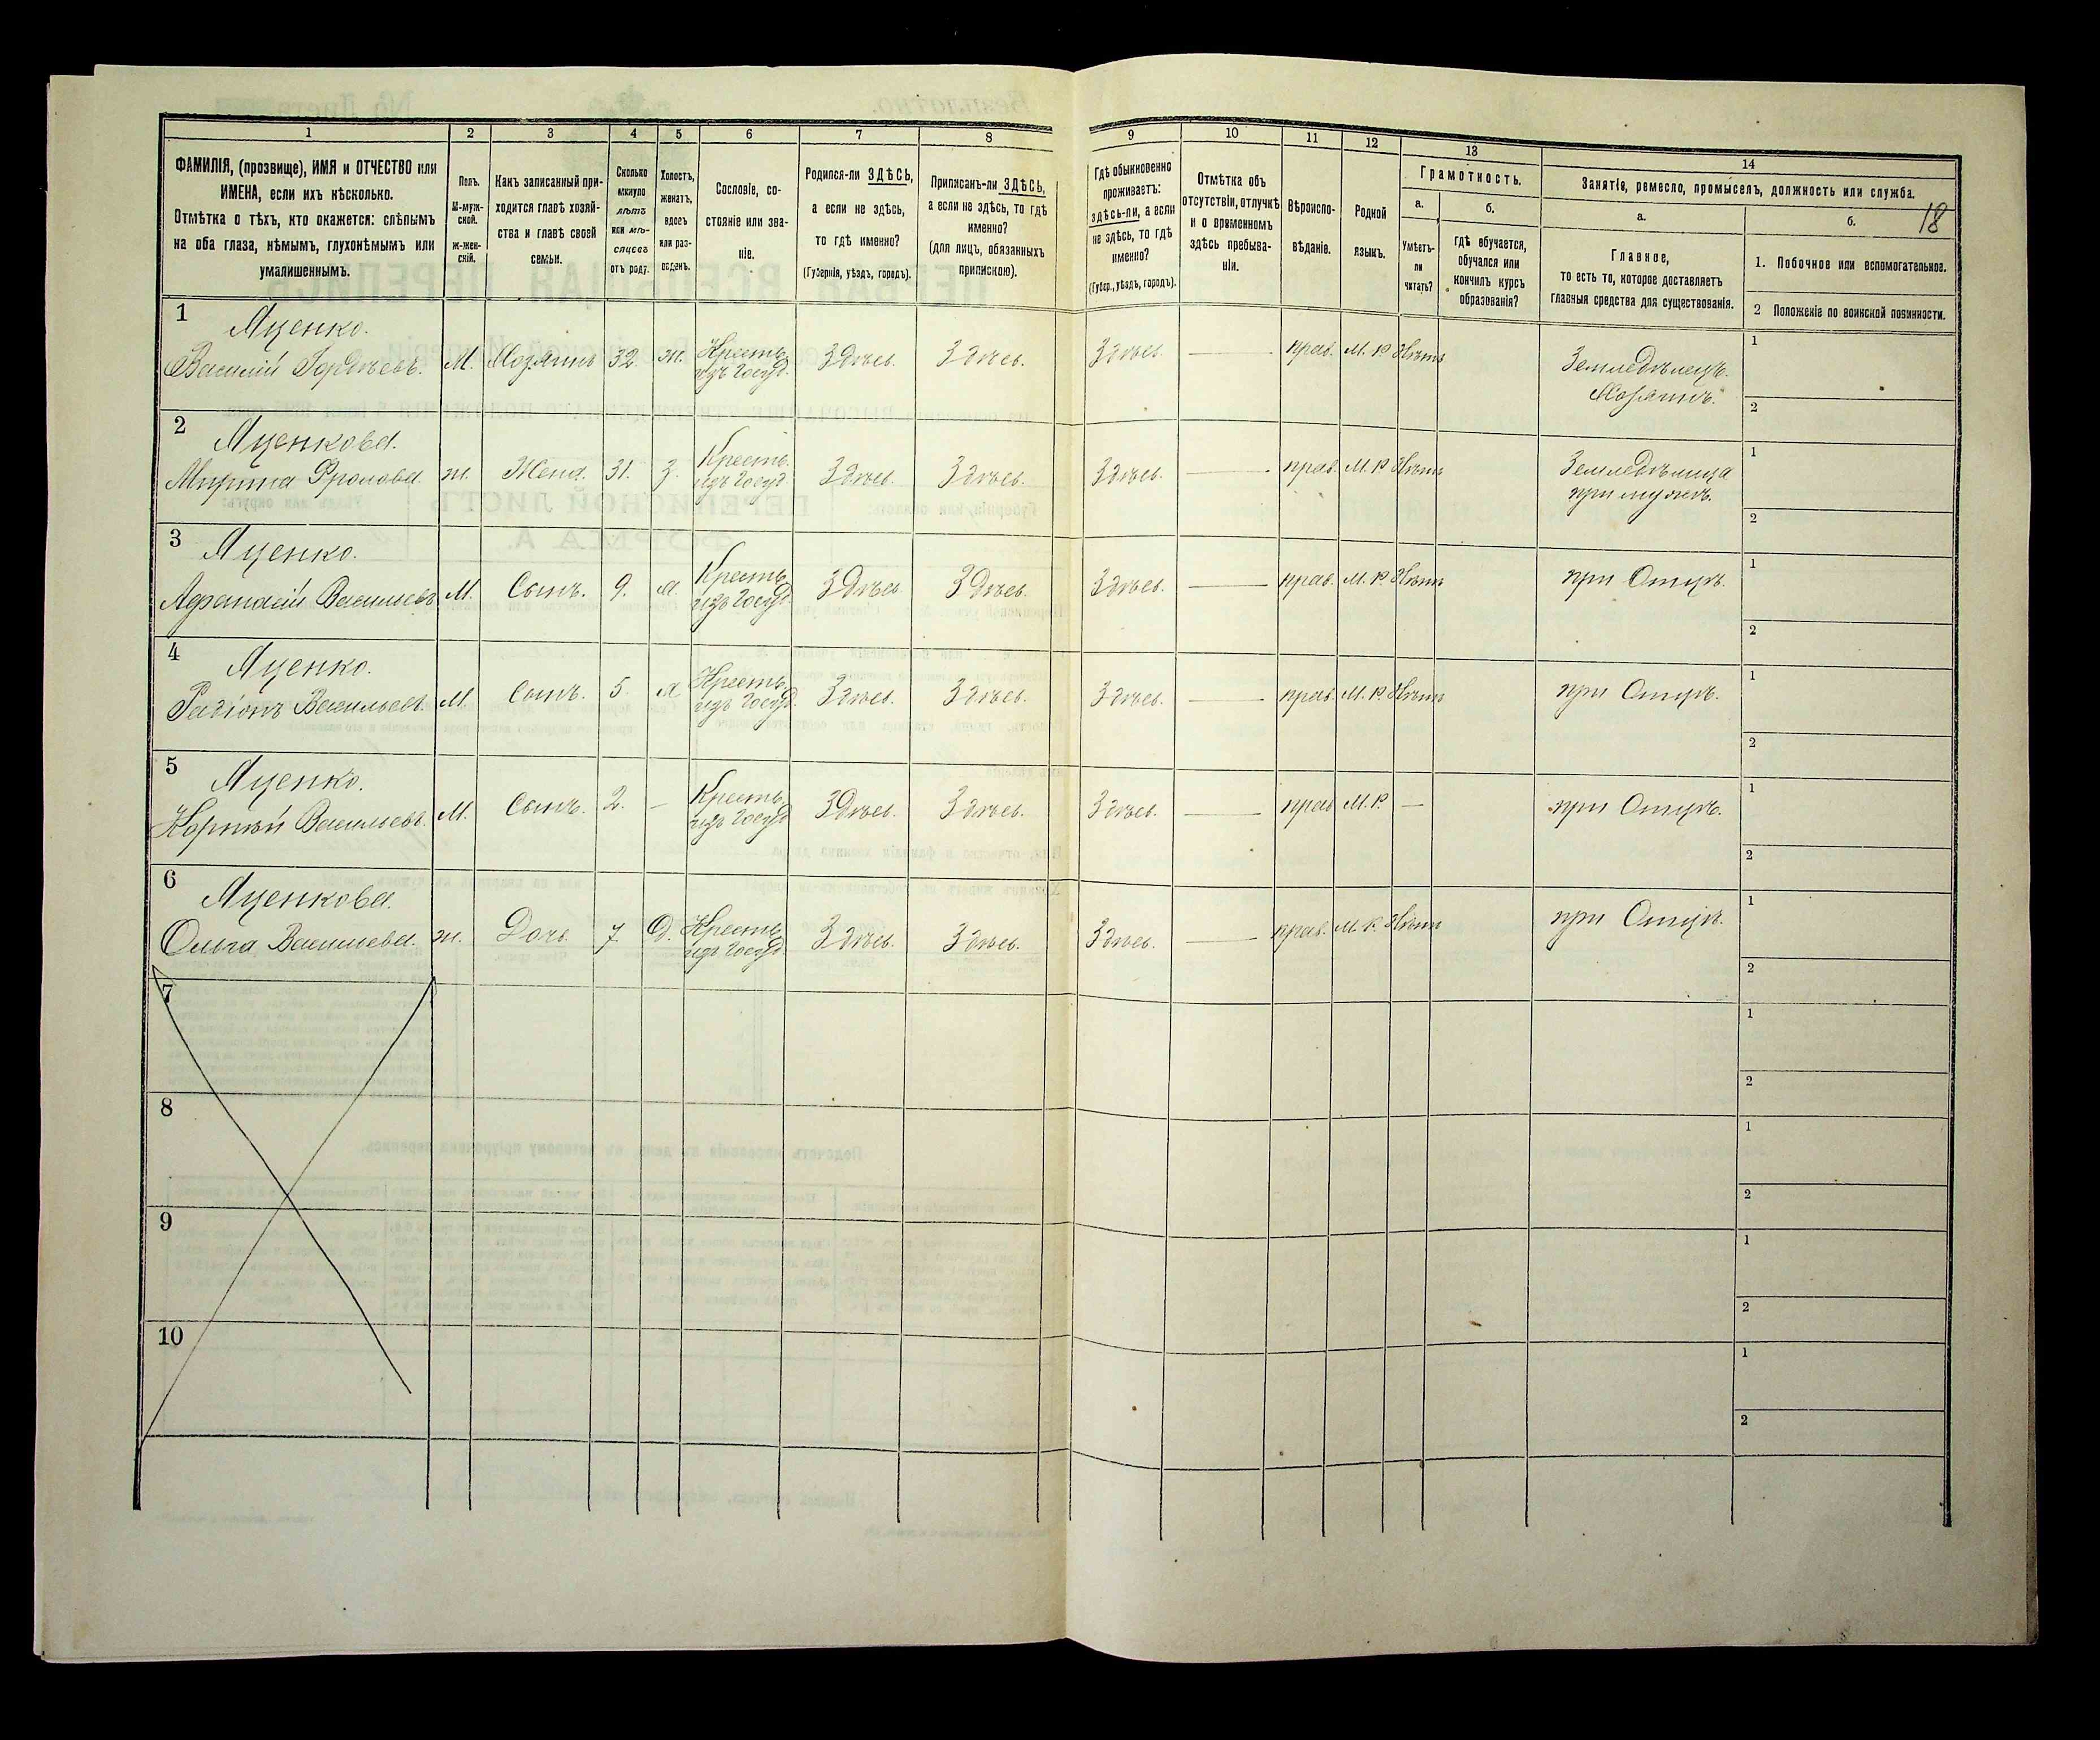 1 2 3 4 5 6 7 8 9 10 11 12 13 14
ФАМИЛІЯ, (прозвище), ИМЯ и ОТЧЕСТВО или
ИМЕНА, если ихъ нѣсколько.
Отмѣтка о тѣхъ, кто окажется: слѣпымъ
на оба глаза, нѣмымъ, глухонѣмымъ или
умалишеннымъ.
Полъ.
М-муж-
ской.
Ж-жен-
скій.
Какъ записанный при-
ходится главѣ хозяй-
ства и главѣ своей
семьи.
Сколько
минуло
лѣтъ
или мѣ-
сяцевъ
отъ роду.
Холостъ,
женатъ,
вдовъ
или раз-
веденъ.
Сословіе, со-
стояніе или зва-
ніе.
Родился-ли ЗДѢСЬ,
а если не здѣсь,
то гдѣ именно?
(Губернія, уѣздъ, городъ).
Приписанъ-ли ЗДѢСЬ,
а если не здѣсь, то гдѣ
именно?
(для лицъ, обязанныхъ
припискою).
Гдѣ обыкновенно
проживаетъ:
здѣсь-ли, а если
не здѣсь, то гдѣ
именно?
(Губер., уѣздъ, городъ).
Отмѣтка объ
отсутствіи, отлучкѣ
и о временномъ
здѣсь пребыва-
ніи.
Вѣроиспо-
вѣданіе.
Родной
языкъ.
Грамотность.
а.
Умѣетъ-
ли
читать?
б.
гдѣ обучается,
обучался или
кончилъ курсъ
образованія?
Занятіе, ремесло, промыселъ, должность или служба.
а.
Главное,
то есть то, которое доставляетъ
главныя средства для существованія.
б.
18
1. Побочное или вспомогательное.
2 Положеніе по воинской повинности.
1
Яценко.
Василий Гордѣевъ. М. Хозяинъ 32 ж. Крестъ. изъ Госуд. Здѣсь. Здѣсь. Здѣсь. — прав. М. Р. Нѣтъ Земледѣлецъ. Хозяинъ.
1
2
2
Яценкова.
Мирина Фролова ж. Жена. 31. З. Крестъ. изъ Госуд. Здѣсь. Здѣсь. Здѣсь. — прав. М. Р. Нѣтъ Земледѣлица при мужѣ.
1
2
3
Яценко.
Афанасій Васильевъ М. Сынъ. 9. Крестъ. изъ Госуд. Здѣсь Здѣсь. Здѣсь. — прав. М. Р. Нѣтъ при Отцѣ.
1
2
4
Яценко.
Радіонъ Васильевъ. М. Сынъ. 5. Крестъ. изъ Госуд. Здѣсь. Здѣсь. Здѣсь. — прав. М. Р. Нѣтъ при Отцѣ.
1
2
5
Яценко.
Корнѣй Васильевъ. М. Сынъ. 2. — Крестъ. изъ Госуд Здѣсь. Здѣсь. Здѣсь. — прав М. Р. — при Отцѣ.
1
2
6
Яценкова.
Ольга Васильева. ж. Дочь. 7. Д. Крестъ. изъ Госуд. Здѣсь. Здѣсь. Здѣсь. — прав. М. Р. Нѣтъ при Отцѣ.
1
2
7
1
2
8
1
2
9
1
2
10
1
2